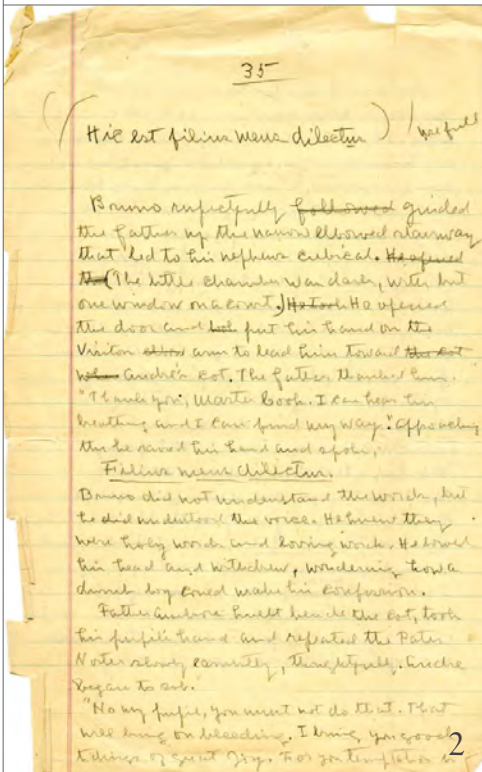 35
Hic est filius meus dilectus
Bruno respectfully followed guided
the father up the narrow elbowed stairway
that led to his nephews cubical. He opened
the (The little chamber was dark, with but
one window on a court.) He took He opened
the door and took put his hand on the
Visitors elbow arm to lead him toward the cot
when André's cot. The father thanked him.
"Thank you, Master Cook. I can hear his
breathing and I can find my way." Approaching
the he raised his hand and spoke,
Filius meus dilectus.
Bruno did not understand the words, but
he did understood the voice. He knew they
were holy words and loving words. He bowed
his head and withdrew, wondering how a
dumb boy could make his confession.
Father Ambrose knelt beside the cot, took
his pupils hand and repeated the Pater
Noster slowly earnestly, thoughtfully. Andre
began to sob.
"No my pupil, you must not do that. That
will bring on bleeding. I bring you good
tidings of great joy. For you temptation is
2